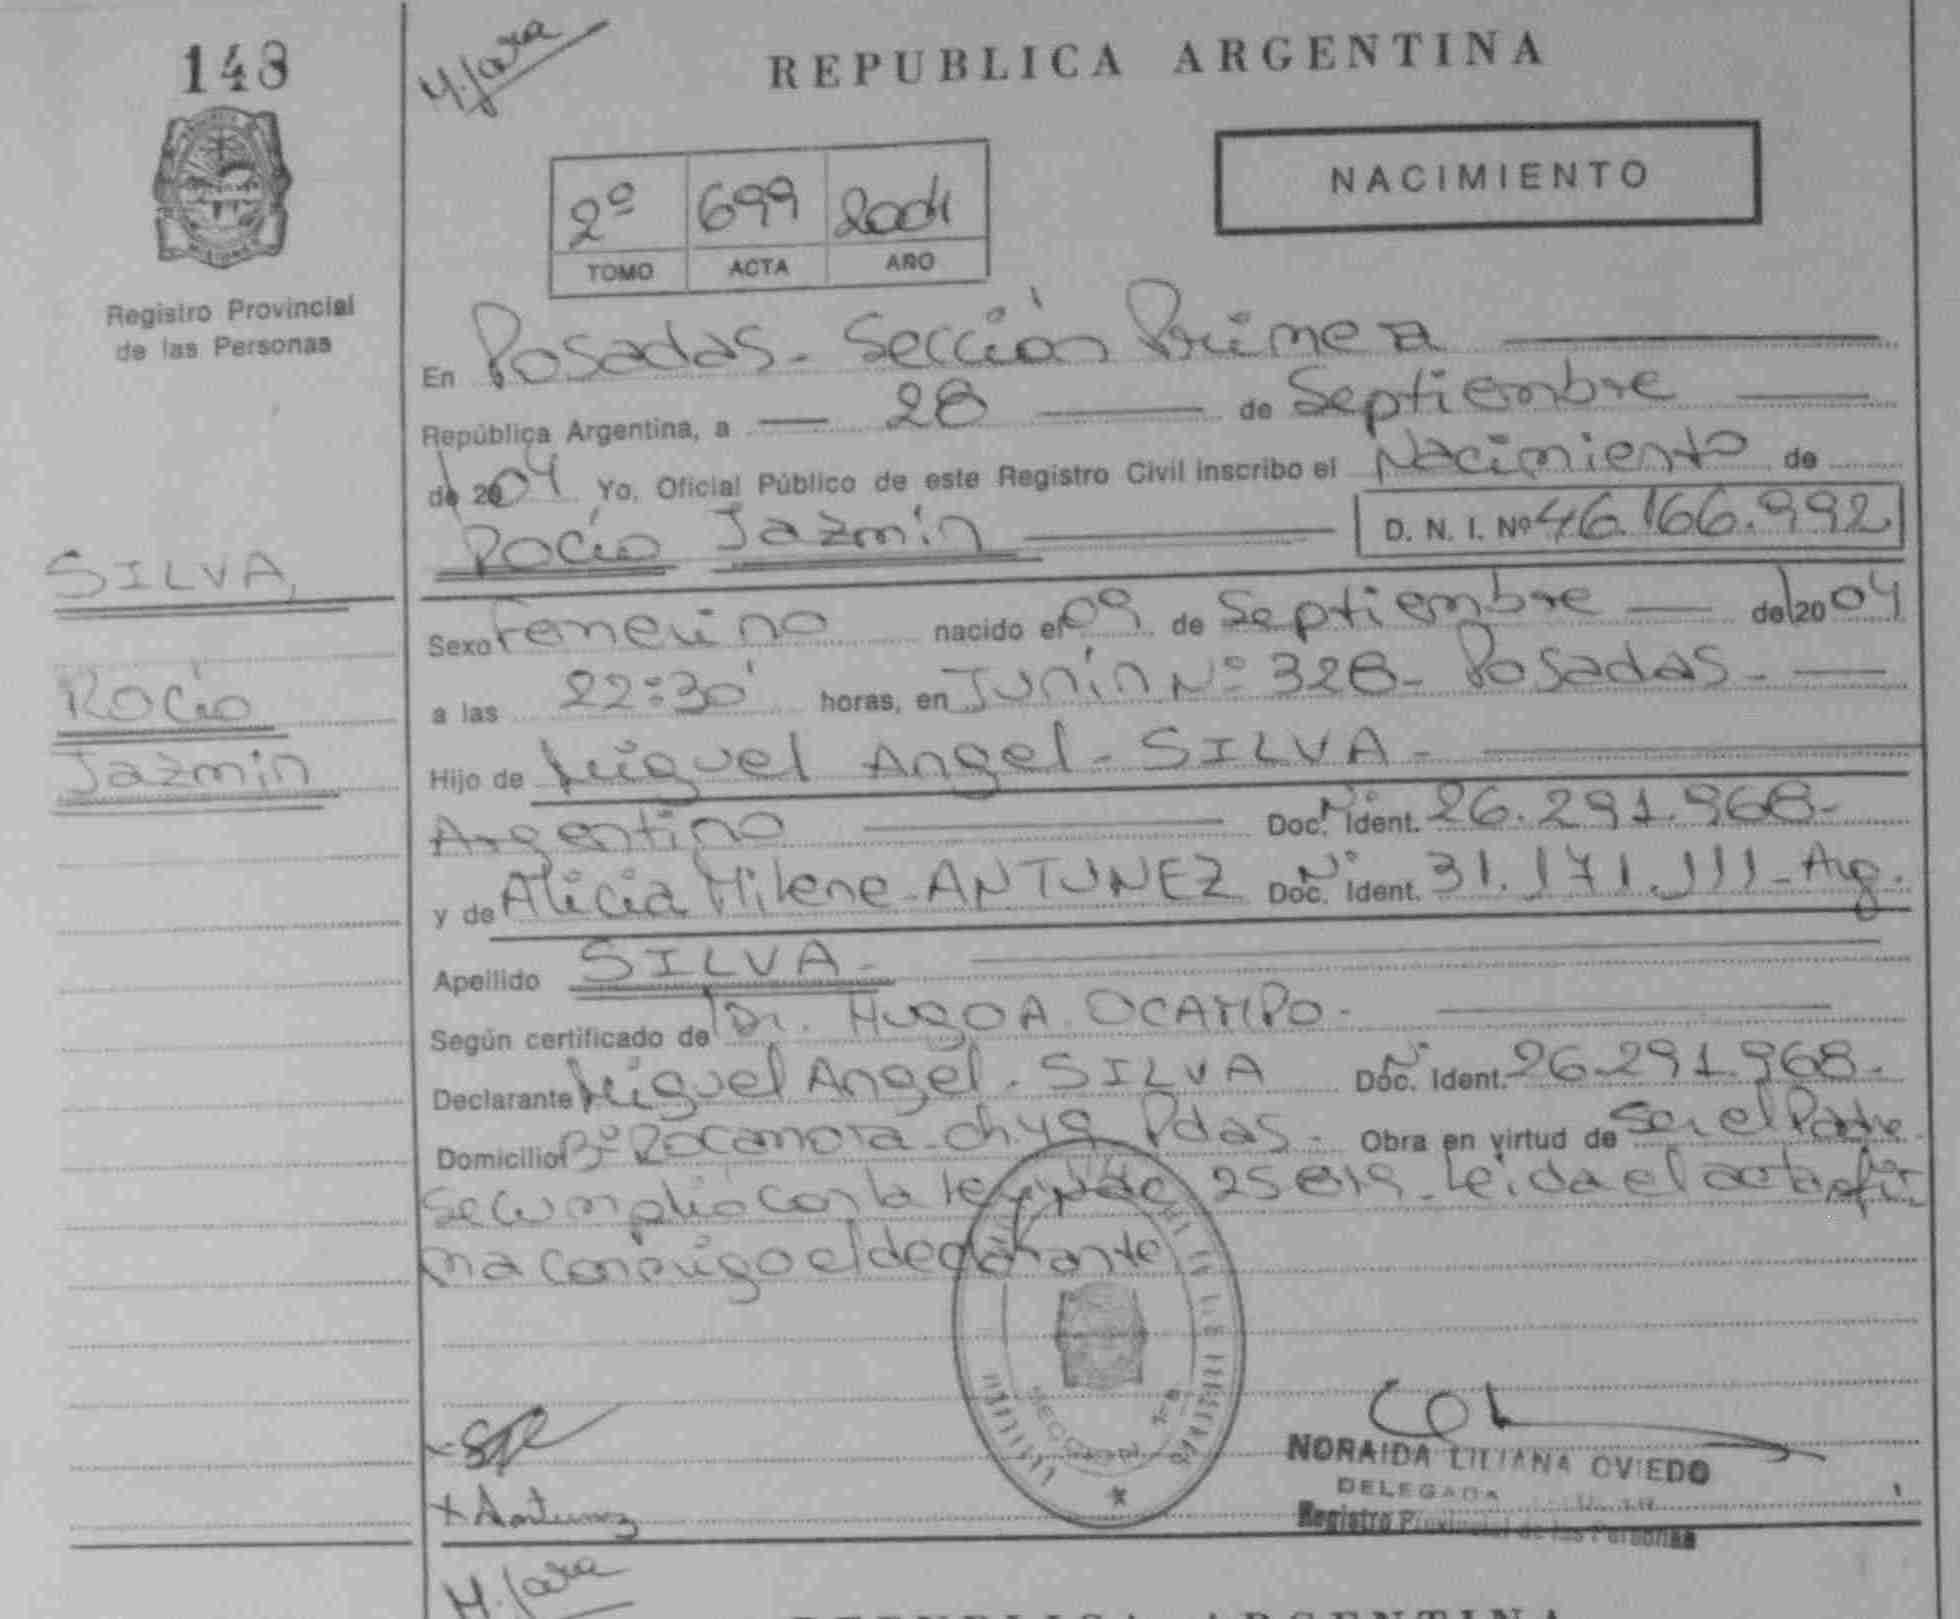 143
M. Jara
REPUBLICA ARGENTINA
NACIMIENTO
2º 699 2004
TOMO ACTA AÑO
Registro Provincial
de las Personas
En Posadas - Sección Primera
República Argentina, a 28 de Septiembre
de 2004 Yo, Oficial Público de este Registro Civil inscribo el Nacimiento de
Rocío Jazmín D. N. I. Nº 46.166.992
SILVA,
Rocío
Jazmín
Sexo Femenino nacido el 09 de Septiembre del 2004
a las 22:30' horas, en Junín Nº 328 - Posadas -
Hijo de Miguel Angel - SILVA -
Argentino Doc. Nº Ident. 26.291.968 -
y de Alicia Milene - ANTUNEZ Doc. Nº Ident. 31.171.111 - Arg.
Apellido SILVA -
Según certificado de Dr. Hugo A. OCAMPO -
Declarante Miguel Angel - SILVA Doc. Nº Ident. 26.291.968 -
Domicilio Bº Rocamora - Pdas - Obra en virtud de Ser el Padre -
Se cumplió con la ley Nac 25819 - Leída el acta fir-
ma conmigo el declarante
SECCION 1ª
Antunez
NORAIDA LILIANA OVIEDO
DELEGADA
Registro Provincial de las Personas
M. Jara
REPUBLICA ARGENTINA